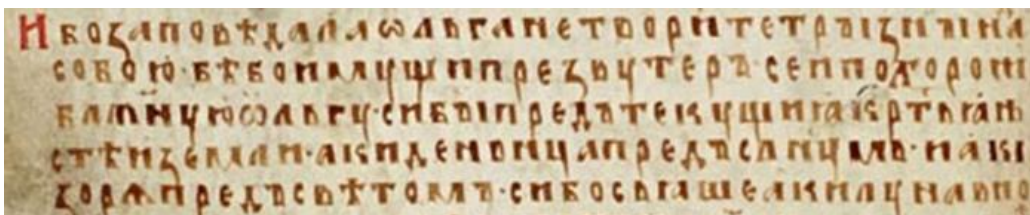 И бозаповѣдалаѡльганетворитетрꙑзнꙑна
собою·бѣбоимущипрезвутеръ·сеипохорони
бл҃жнуюѡльгу·сибꙑпредътекущиꙗкр҇тьꙗнь
стѣиземли·акиденьницапредъслн҃цмь·иакꙑ
зорѧпредъсвѣтомь·сибосьꙗшеакилунавъно